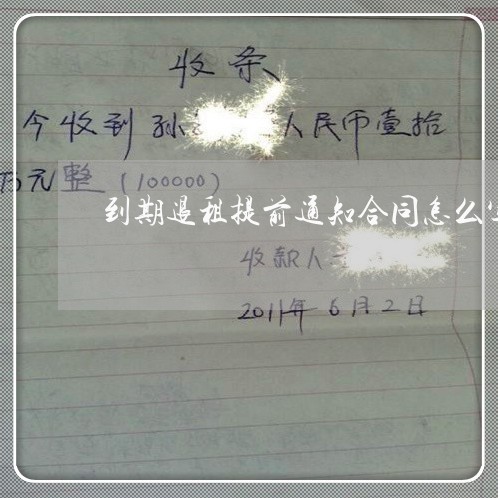 收条
今收到孙 人民币壹拾
万元整（100000）
到期退租提前通知合同怎么
收款人
2011年6月2日